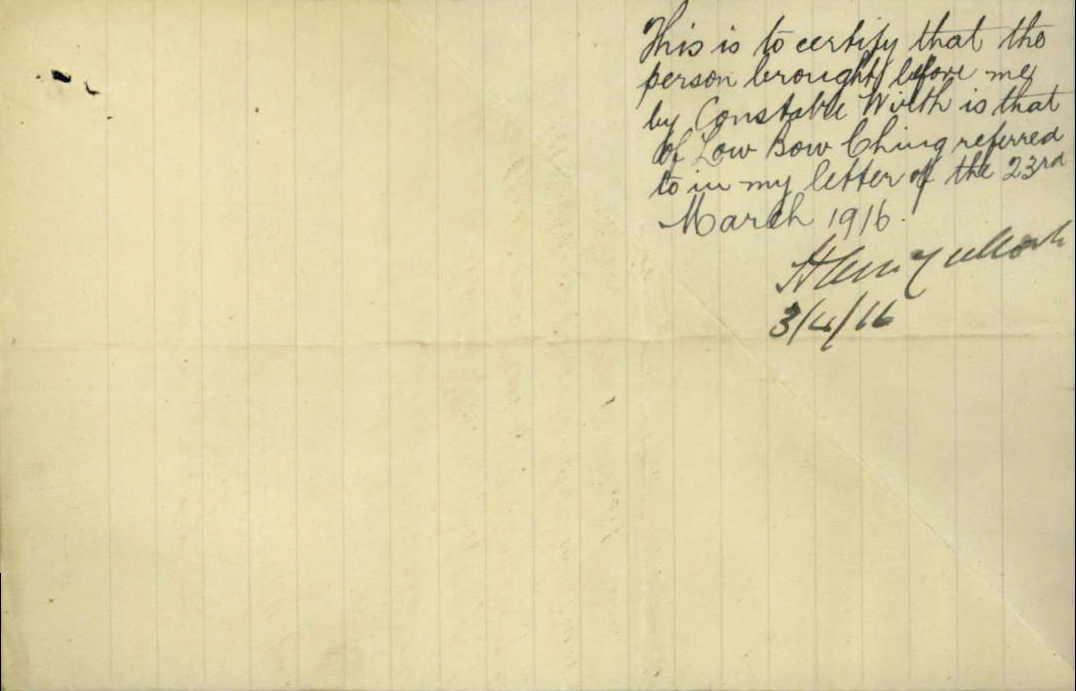 This is to certify that the
person brought before me
by Constable Wirth is that
of Low Bow Ching referred
to in my letter of the 23rd
March 1916.
3/4/16